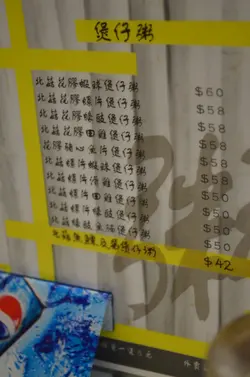 煲仔粥
北菇花膠蝦球煲仔粥 $60
北菇花膠螺片煲仔粥 $58
北菇花膠條腩煲仔粥 $58
北菇花膠田雞煲仔粥 $58
花膠糖心魚片煲仔粥 $58
北菇螺片蝦球煲仔粥 $58
北菇螺片滑雞煲仔粥 $50
北菇螺片田雞煲仔粥 $50
北菇螺片條腩煲仔粥 $50
北菇 條腩煲仔粥 $50
北菇魚 煲仔粥 $42
外賣